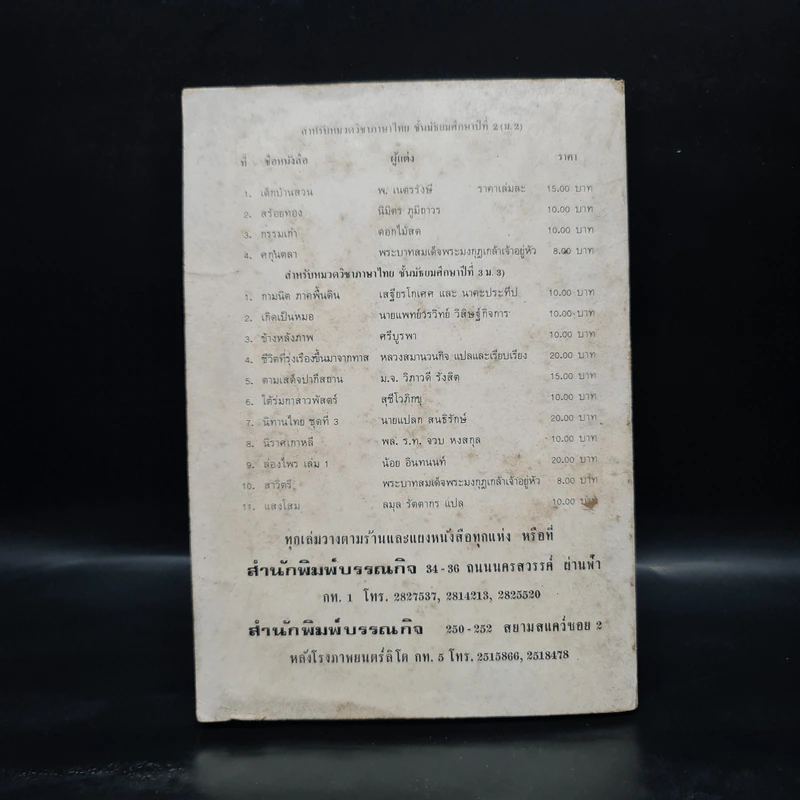 สำหรับหมวดวิชาภาษาไทย ชั้นมัธยมศึกษาปีที่ 2 (ม.2)
ที่ ชื่อหนังสือ ผู้แต่ง ราคา
1. เด็กบ้านสวน พ. เนตรรังษี ราคาเล่มละ 15.00 บาท
2. สร้อยทอง นิมิตร ภูมิถาวร 10.00 บาท
3. กรรมเก่า ดอกไม้สด 10.00 บาท
4. ศกุนตลา พระบาทสมเด็จพระมงกุฎเกล้าเจ้าอยู่หัว 8.00 บาท
สำหรับหมวดวิชาภาษาไทย ชั้นมัธยมศึกษาปีที่ 3 ม.3)
1. กามนิต ภาคพื้นดิน เสฐียรโกเศศ และ นาคะประทีป 10.00 บาท
2. เกิดเป็นหมอ นายแพทย์วรวิทย์ วิสิษฐ์กิจการ 10.00 บาท
3. ข้างหลังภาพ ศรีบูรพา 10.00 บาท
4. ชีวิตที่รุ่งเรืองขึ้นมาจากทาส หลวงสมานวนกิจ แปลและเรียบเรียง 20.00 บาท
5. ตามเสด็จปากีสถาน ม.จ. วิภาวดี รังสิต 15.00 บาท
6. ใต้ร่มกาสาวพัสตร์ สุชีโวภิกขุ 10.00 บาท
7. นิทานไทย ชุดที่ 3 นายแปลก สนธิรักษ์ 20.00 บาท
8. นิราศเกาหลี พล. ร.ท. จวบ หงสกุล 10.00 บาท
9. ล่องไพร เล่ม 1 น้อย อินทนนท์ 20.00 บาท
10. สาวิตรี พระบาทสมเด็จพระมงกุฎเกล้าเจ้าอยู่หัว 8.00 บาท
11. แสงโสม ลมุล รัตตากร แปล 10.00 บาท
ทุกเล่มวางตามร้านและแผงหนังสือทุกแห่ง หรือที่
สำนักพิมพ์บรรณกิจ 34-36 ถนนนครสวรรค์ ย่านฟ้า
กท. 1 โทร. 2827537, 2814213, 2825520
สำนักพิมพ์บรรณกิจ 250-252 สยามสแควร์ซอย 2
หลังโรงภาพยนตร์ลิโด กท. 5 โทร. 2515866, 2518478